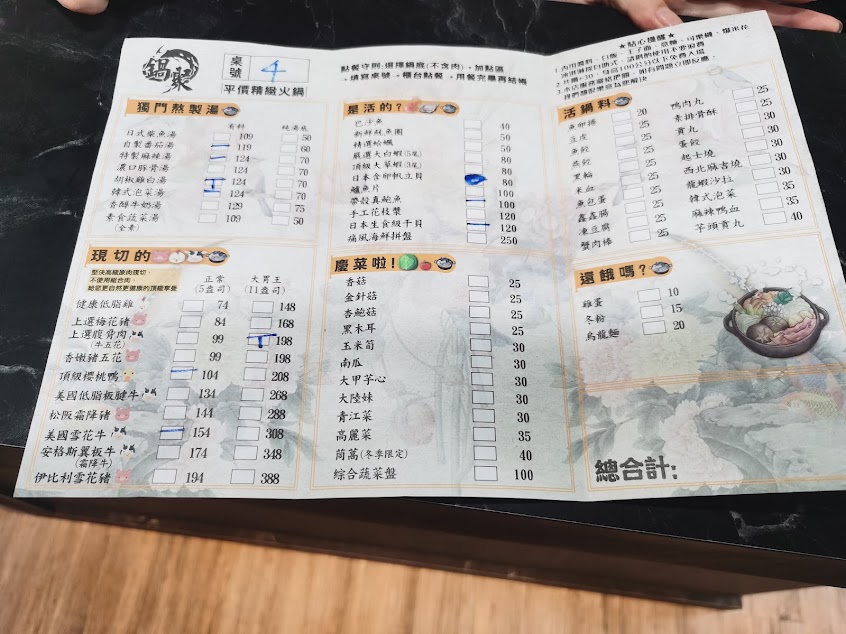 鍋聚
桌號 4
平價精緻火鍋
點餐守則:選擇鍋底(不含肉)→加點區
→填寫桌號→櫃台點餐→用餐完畢再結帳
★貼心提醒★
獨門熬製湯
有料 純湯底
日式柴魚湯 109 50
自製番茄湯 119 60
特製麻辣湯 124 70
濃口豚骨湯 124 70
胡椒雞白湯 124 70
韓式泡菜湯 124 70
香醇牛奶湯 129 75
素食蔬菜湯 109 50
(全素)
現切的
堅決高規原肉現切,
不使用組合肉
正常 大胃王
(5盎司) (11盎司)
健康低脂雞 74 148
上選梅花豬 84 168
上選腹脊肉 99 198
(牛五花)
香嫩豬五花 99 198
頂級櫻桃鴨 104 208
美國低脂板腱牛 134 268
松阪霜降豬 144 288
美國雪花牛 154 308
安格斯翼板牛 174 348
(霜降牛)
伊比利雪花豬 194 388
是活的?
巴沙魚 40
新鮮鮭魚圈 50
精選蛤蠣 50
嚴選大白蝦(5尾) 80
頂級大草蝦(3尾) 80
日本含卵帆立貝 80
鱸魚片 80
帶殼真鮑魚 100
手工花枝漿 120
日本生食級干貝 120
痛風海鮮拼盤 250
慶菜啦!
香菇 25
金針菇 25
杏鮑菇 25
黑木耳 25
玉米筍 30
南瓜 30
大甲芋心 30
大陸妹 30
青江菜 30
高麗菜 35
茼萵(冬季限定) 40
綜合蔬菜盤 100
活鍋料
魚卵捲 20
豆皮 25
魚餃 25
燕餃 25
黑輪 25
米血 25
魚包蛋 25
鑫鑫腸 25
凍豆腐 25
蟹肉棒 25
鴨肉丸 25
素排骨酥 25
貢丸 25
蛋餃 25
起士燒 25
西北麻吉燒 30
龍蝦沙拉 30
韓式泡菜 35
麻辣鴨血 35
芋頭貢丸 40
還餓嗎?
雞蛋 10
冬粉 15
烏龍麵 20
總合計: